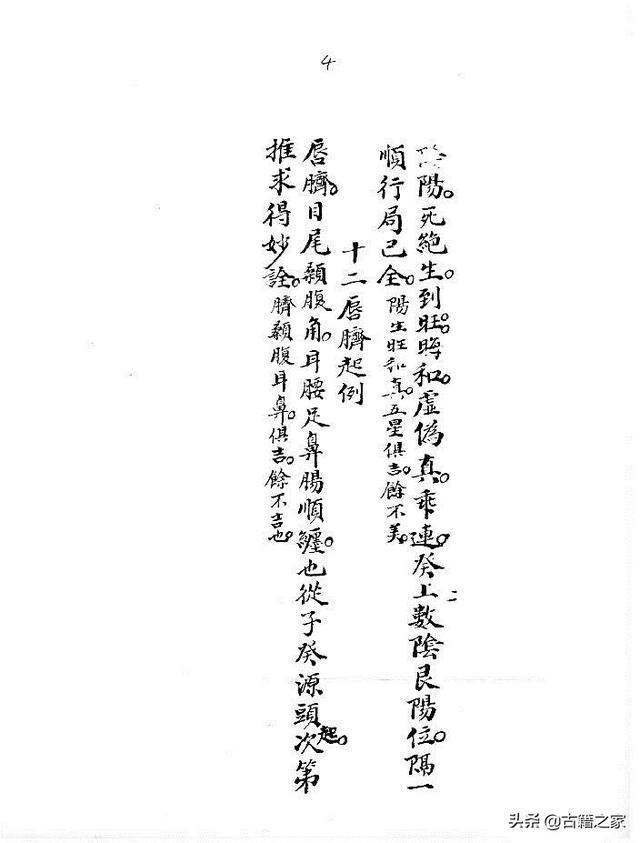 4
陰陽。死絕生。到旺。晦和。虛偽真。乘連。癸上數陰艮陽位。隔一
順行局已全。陽生旺和真。五星俱吉。餘不美。
十二唇臍起例
唇臍。目尾顙腹角。耳腰足鼻腸順纏。也從子癸源頭起。次第
推求得妙詮。臍顙腹耳鼻。俱吉。餘不吉也。
头条 @古籍之家